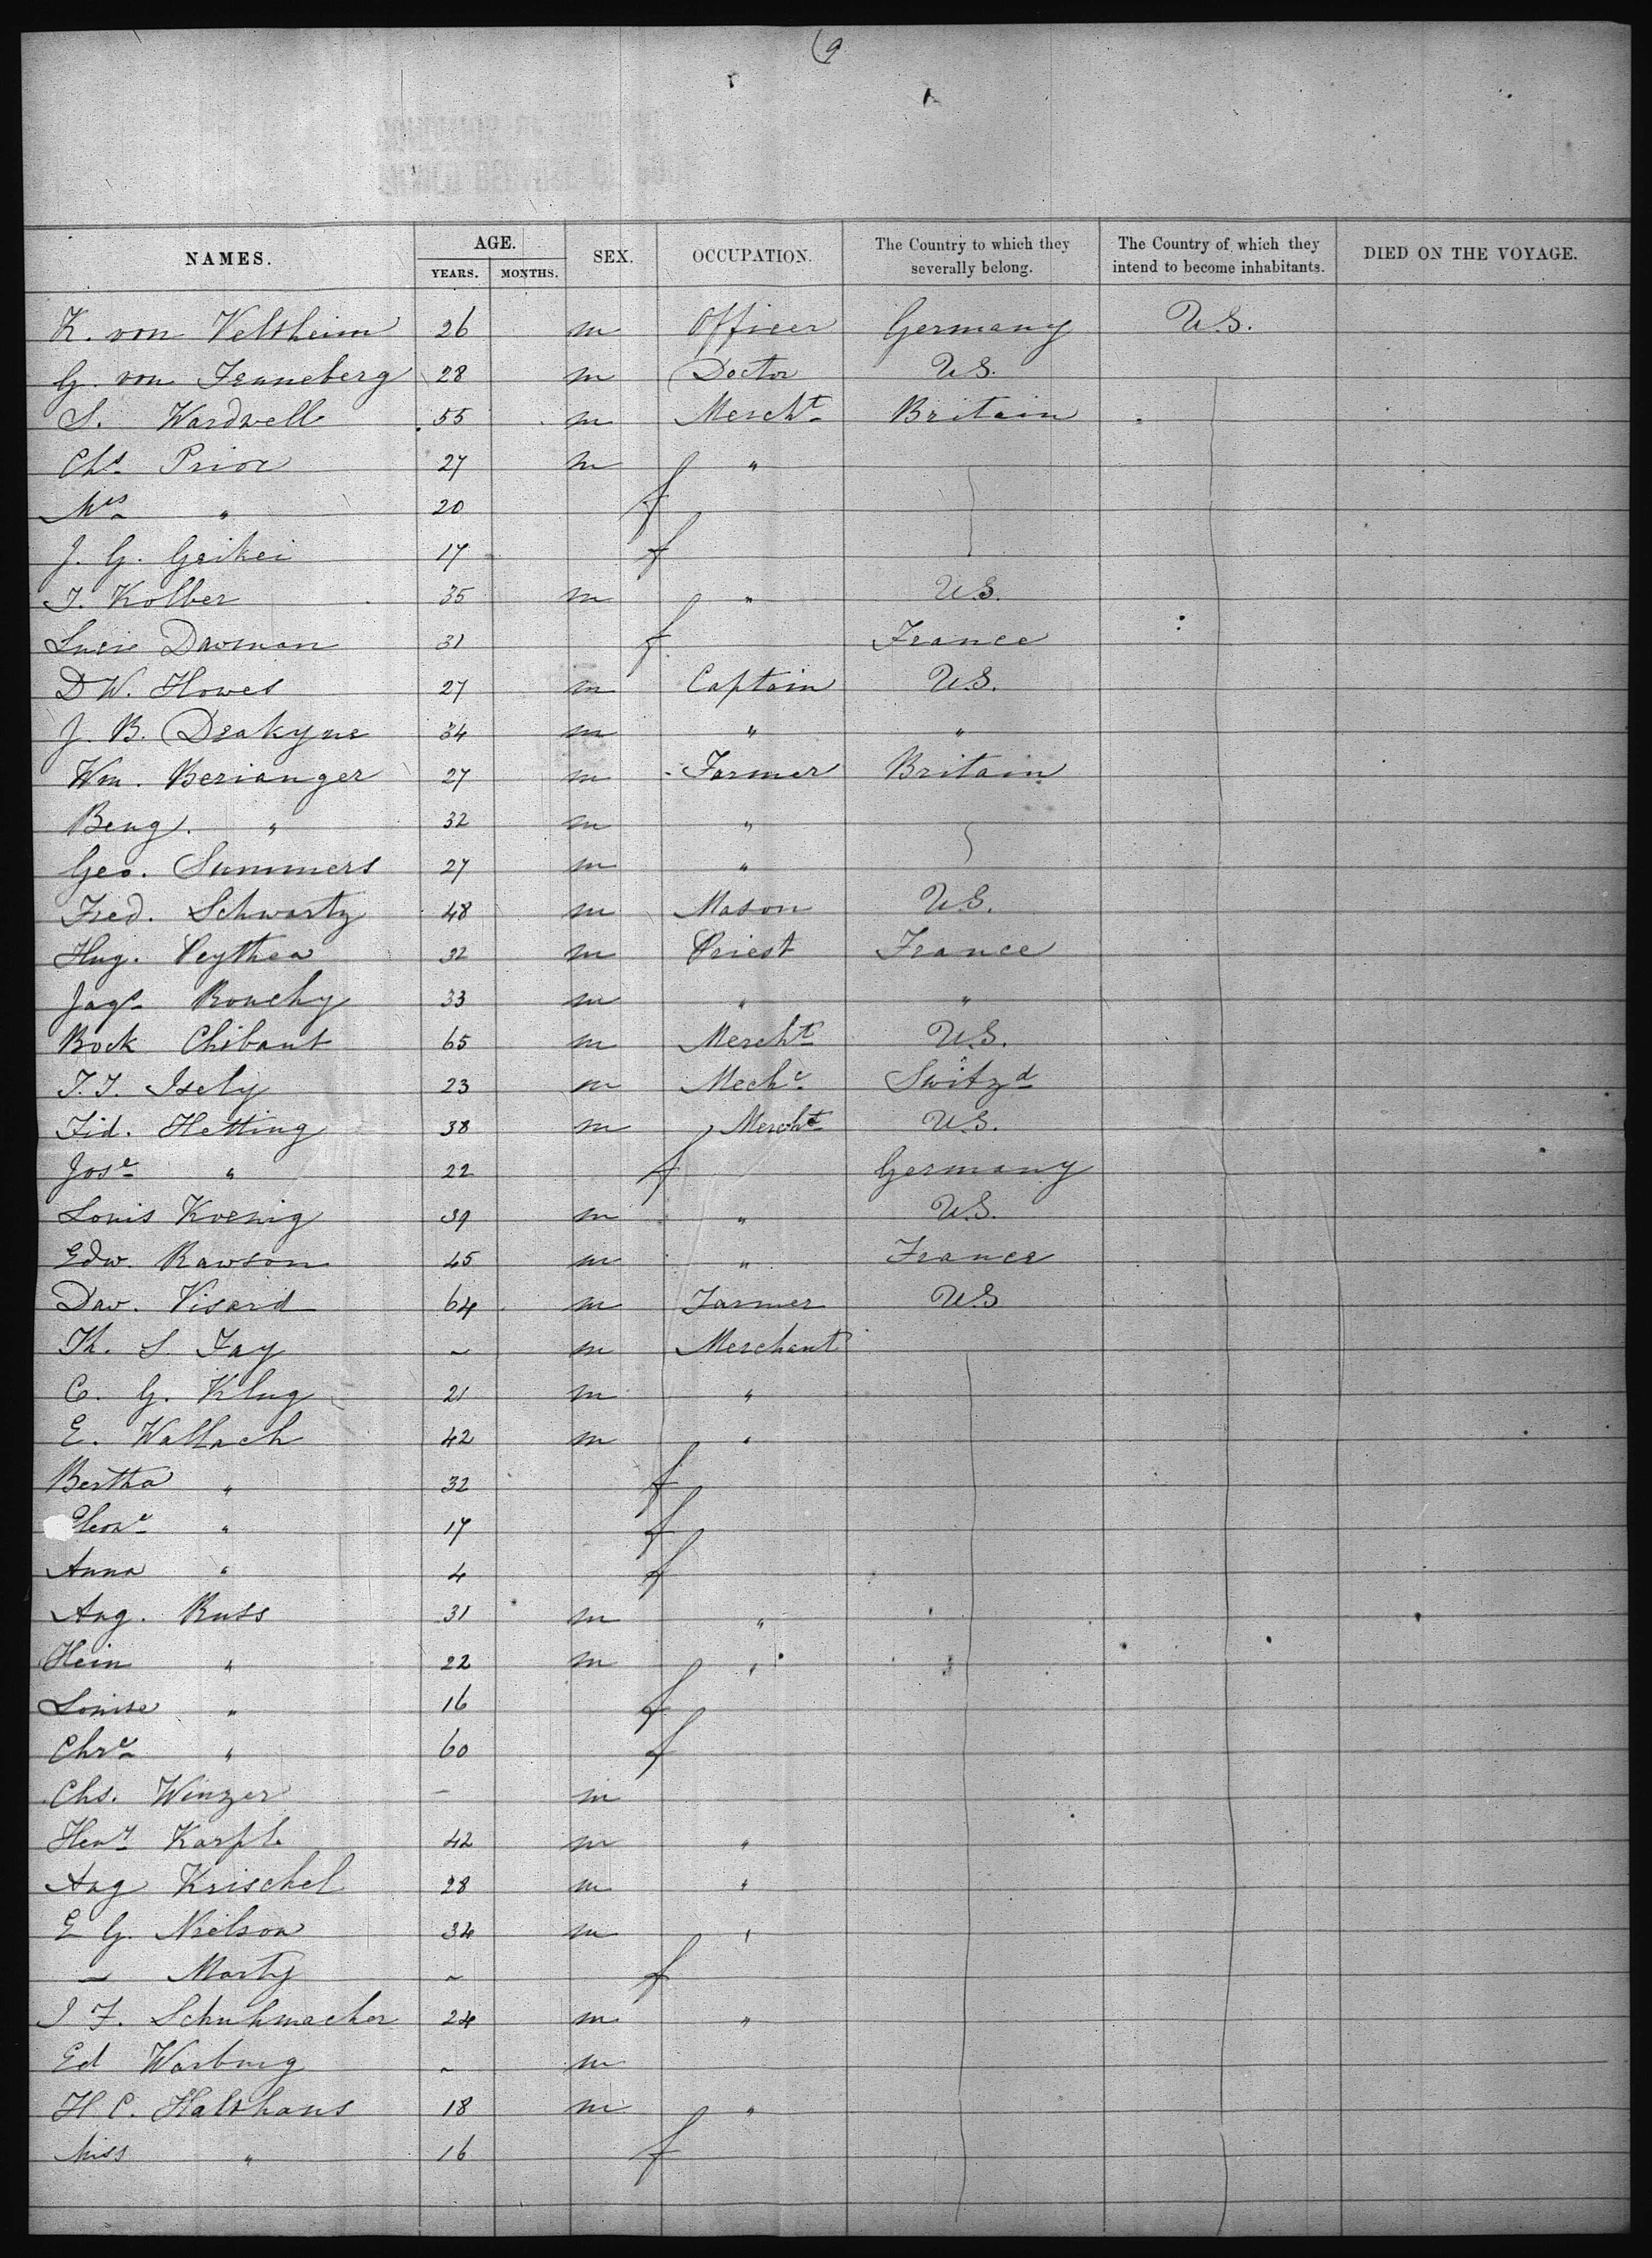 9
NAMES. AGE. YEARS. MONTHS. SEX. OCCUPATION. The Country to which they severally belong. The Country of which they intend to become inhabitants. DIED ON THE VOYAGE.
K. von Veltheim 26 m Officer Germany U.S.
G. von Fenneberg 28 m Doctor U.S.
S. Wardwell 55 m Mercht Britain
Chs Prior 27 m "
Mrs " 20 f
J. G. Geikei 17 f
T. Kolber 35 m " U.S.
Lucie Davman 31 f France
D W. Howes 27 m Captain U.S.
J. B. Deakyne 34 m " "
Wm. Berianger 27 m Farmer Britain
Beng. " 32 m "
Geo. Summers 27 m "
Fred. Schwartz 48 m Mason U.S.
Hug. Peythea 32 m Priest France
Jaqs Rouchy 33 m " "
Bock Chibaut 65 m Mercht U.S.
J. J. Isely 23 m Mechc Switzd
Fid. Hetting 38 m Mercht U.S.
Jose " 22 f Germany
Louis Koenig 39 m " U.S.
Edw. Rawson 45 m " France
Dav. Visard 64 m Farmer U.S
Th. S. Fay ~ m Merchant
C. G. Klug 21 m "
E. Wallach 42 m "
Bertha " 32 f
Eleone " 17 f
Anna " 4 f
Aug. Russ 31 m "
Hein " 22 m "
Louise " 16 f
Chre " 60 f
Chs. Winzer – m
Heny Karple 42 m "
Aug Krischel 28 m "
E G. Nielson 34 m "
– Marty ~ f
J F. Schuhmacher 24 m "
Ed Warburg ~ m
H. C. Halthaus 18 m "
Miss " 16 f